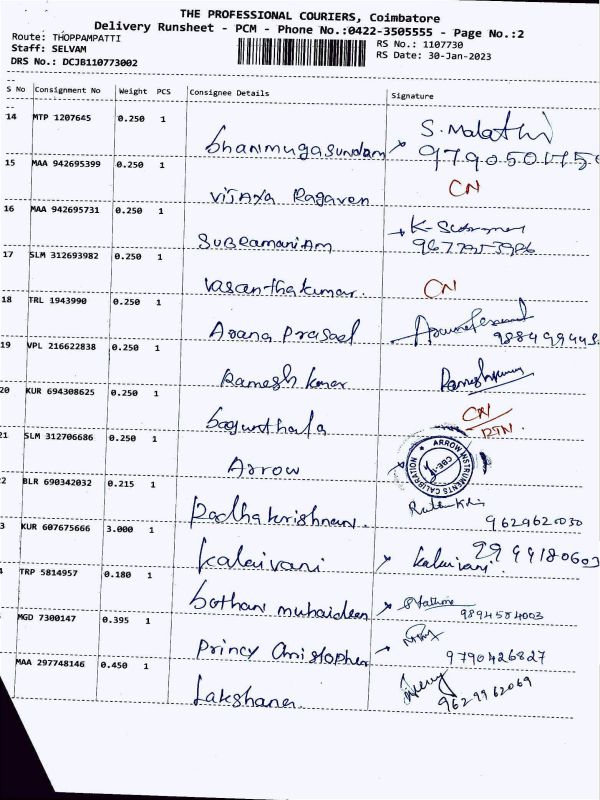 THE PROFESSIONAL COURIERS, Coimbatore
Delivery Runsheet - PCM - Phone No.:0422-3505555 - Page No.:2
Route: THOPPAMPATTI
Staff: SELVAM
DRS No.: DCJB110773002
RS No.: 1107730
RS Date: 30-Jan-2023
S No Consignment No Weight PCS Consignee Details Signature
14 MTP 1207645 0.250 1 Shanmugasundam S. Malathi
15 MAA 942695399 0.250 1 Vijaya Ragaven CN
16 MAA 942695731 0.250 1 Subramaniam
17 SLM 312693982 0.250 1 Vasanthakumar CN
18 TRL 1943990 0.250 1 Arana Prasad
19 VPL 216622838 0.250 1 Ramesh kmar
20 KUR 694308625 0.250 1 CN
RTN.
21 SLM 312706686 0.250 1 Arrow ARROW INSTRUMENTS CALIBRATION
2 BLR 690342032 0.215 1 Radhakrishnan 9629620030
3 KUR 607675666 3.000 1 kalaivani kalaivani
TRP 5814957 0.180 1 bothan muhaideen 9894584003
MGD 7300147 0.395 1 Princy Christopher 9790426827
MAA 297748146 0.450 1 Lakshana 9629962069